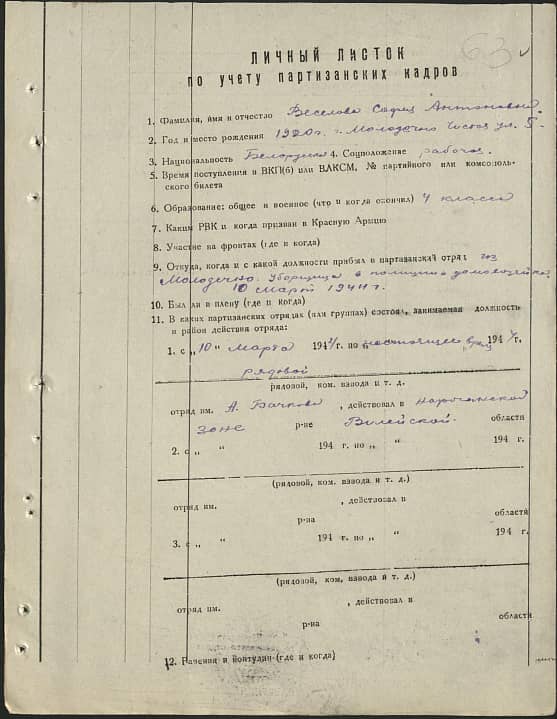 63
ЛИЧНЫЙ ЛИСТОК
по учету партизанских кадров
1. Фамилия, имя и отчество Веселова Антоновна
2. Год и место рождения 1920г. г. Молодечно Чистая ул. 5.
3. Национальность Белоруска 4. Соцположение рабочая.
5. Время поступления в ВКП(б) или ВЛКСМ, № партийного или комсополь-
ского билета
6. Образование: общее и военное (что и когда окончил) 4 класса
7. Каким РВК и когда призван в Красную Армию
8. Участие на фронтах (где и когда)
9. Откуда, когда и с какой должности прибыл в партизанский отряд из
Молодечно. Уборщица в полиции домохозяйка
10 март 1944г.
10. Был ли в плену (где и когда)
11. В каких партизанских отрядах (или группах) состоял, занимаемая должность
и район действия отряда:
1. с „10" марта 1944г. по настоящее врем 1944г.
рядовой
рядовой, ком. взвода и т. д.
отряд им. А. Бачкова , действовал в нарочанской
зоне р-не Вилейской. области
2. с „ " 194 г. по „ " 194 г.
(рядовой, ком. взвода и т. д.)
отряд им. , действовал в
р-на области
3. с „ " 194 г. по „ " 194 г.
(рядовой, ком. взвода и т. д.)
отряд им. , действовал в
р-на области
12. Ранения и контузии (где и когда)